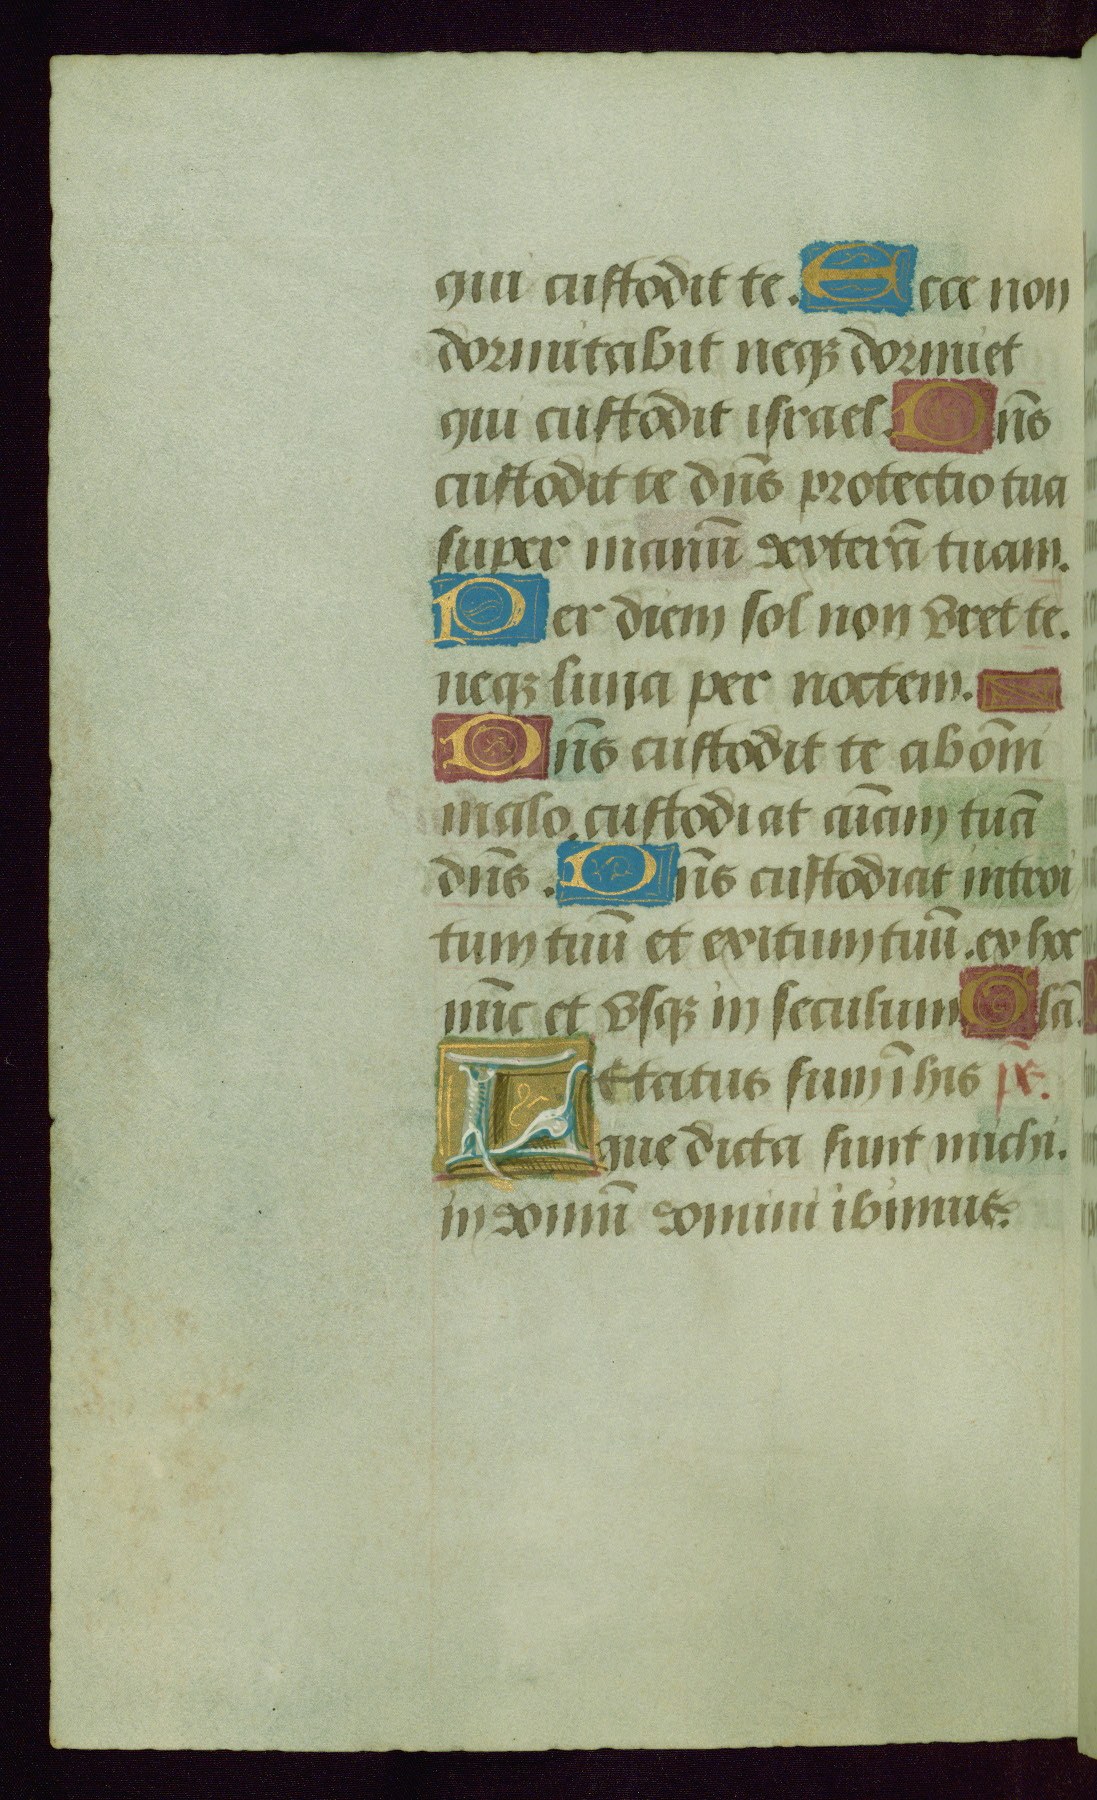 qui custodit te. Ecce non
dormitabit neqꝫ dormiet
qui custodit israel. Dn̄s
custodit te dn̄s protectio tua
super manū dexterā tuam.
Per diem sol non vret te.
neqꝫ luna per noctem.
Dn̄s custodit te ab om̄i
malo. custodiat aīam tuā
dn̄s. Dn̄s custodiat introi
tum tuū et exitum tuū. ex hoc
nūc et vsqꝫ in seculum Glā.
Letatus sum ī his ps̄.
que dicta sunt michi.
in domū domini ibimus.